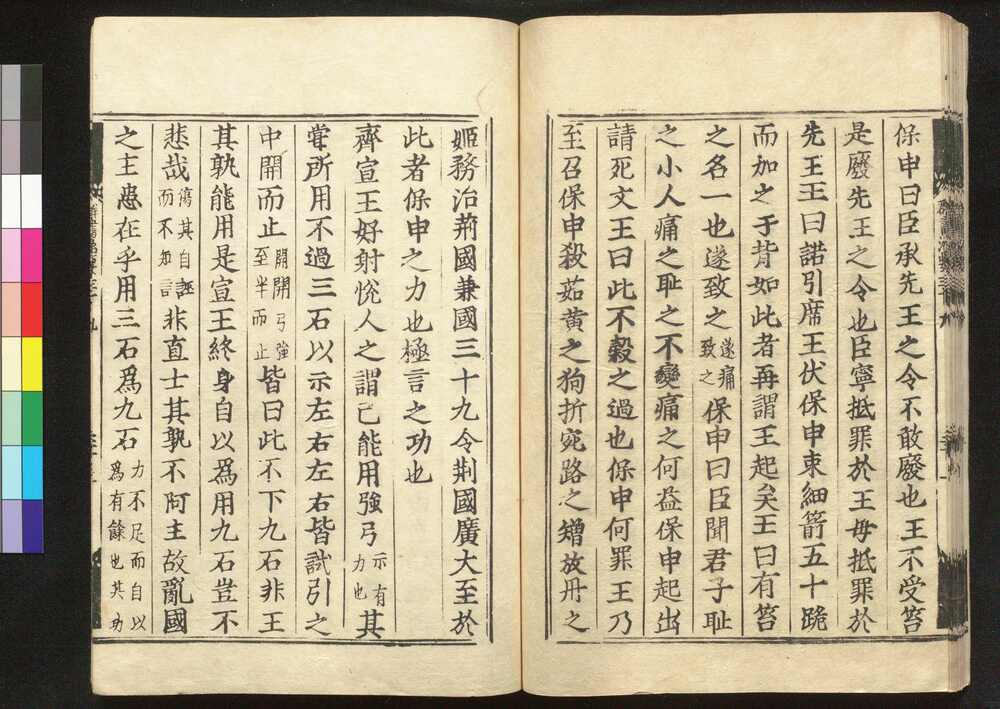 保申曰臣承先王之令不敢廢也王不受笞
是廢先王之令也臣寧抵罪於王毋抵罪於
先王王曰諾引席王伏保申束細箭五十跪
而加之于背如此者再謂王起矣王曰有笞
之名一也遂致之遂痛致之保申曰臣聞君子耻
之小人痛之耻之不變痛之何益保申起出
請死文王曰此不穀之過也保申何罪王乃
至召保申殺茹黄之狗折宛路之矰放丹之
姬務治荊國兼國三十九令荊國廣大至於
此者保申之力也極言之功也
齊宣王好射悅人之謂己能用強弓示有力也其
甞所用不過三石以示左右左右皆試引之
中開而止開開弓強至半而止皆曰此不下九石非王
其孰能用是宣王終身自以爲用九石豈不
悲哉傷其自誣而不知非直士其孰不阿主故亂國
之主患在乎用三石爲九石力不足而自以爲有餘也其功